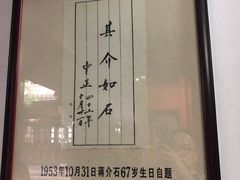 其介如石
中正
1953年10月31日蒋介石67岁生日自题